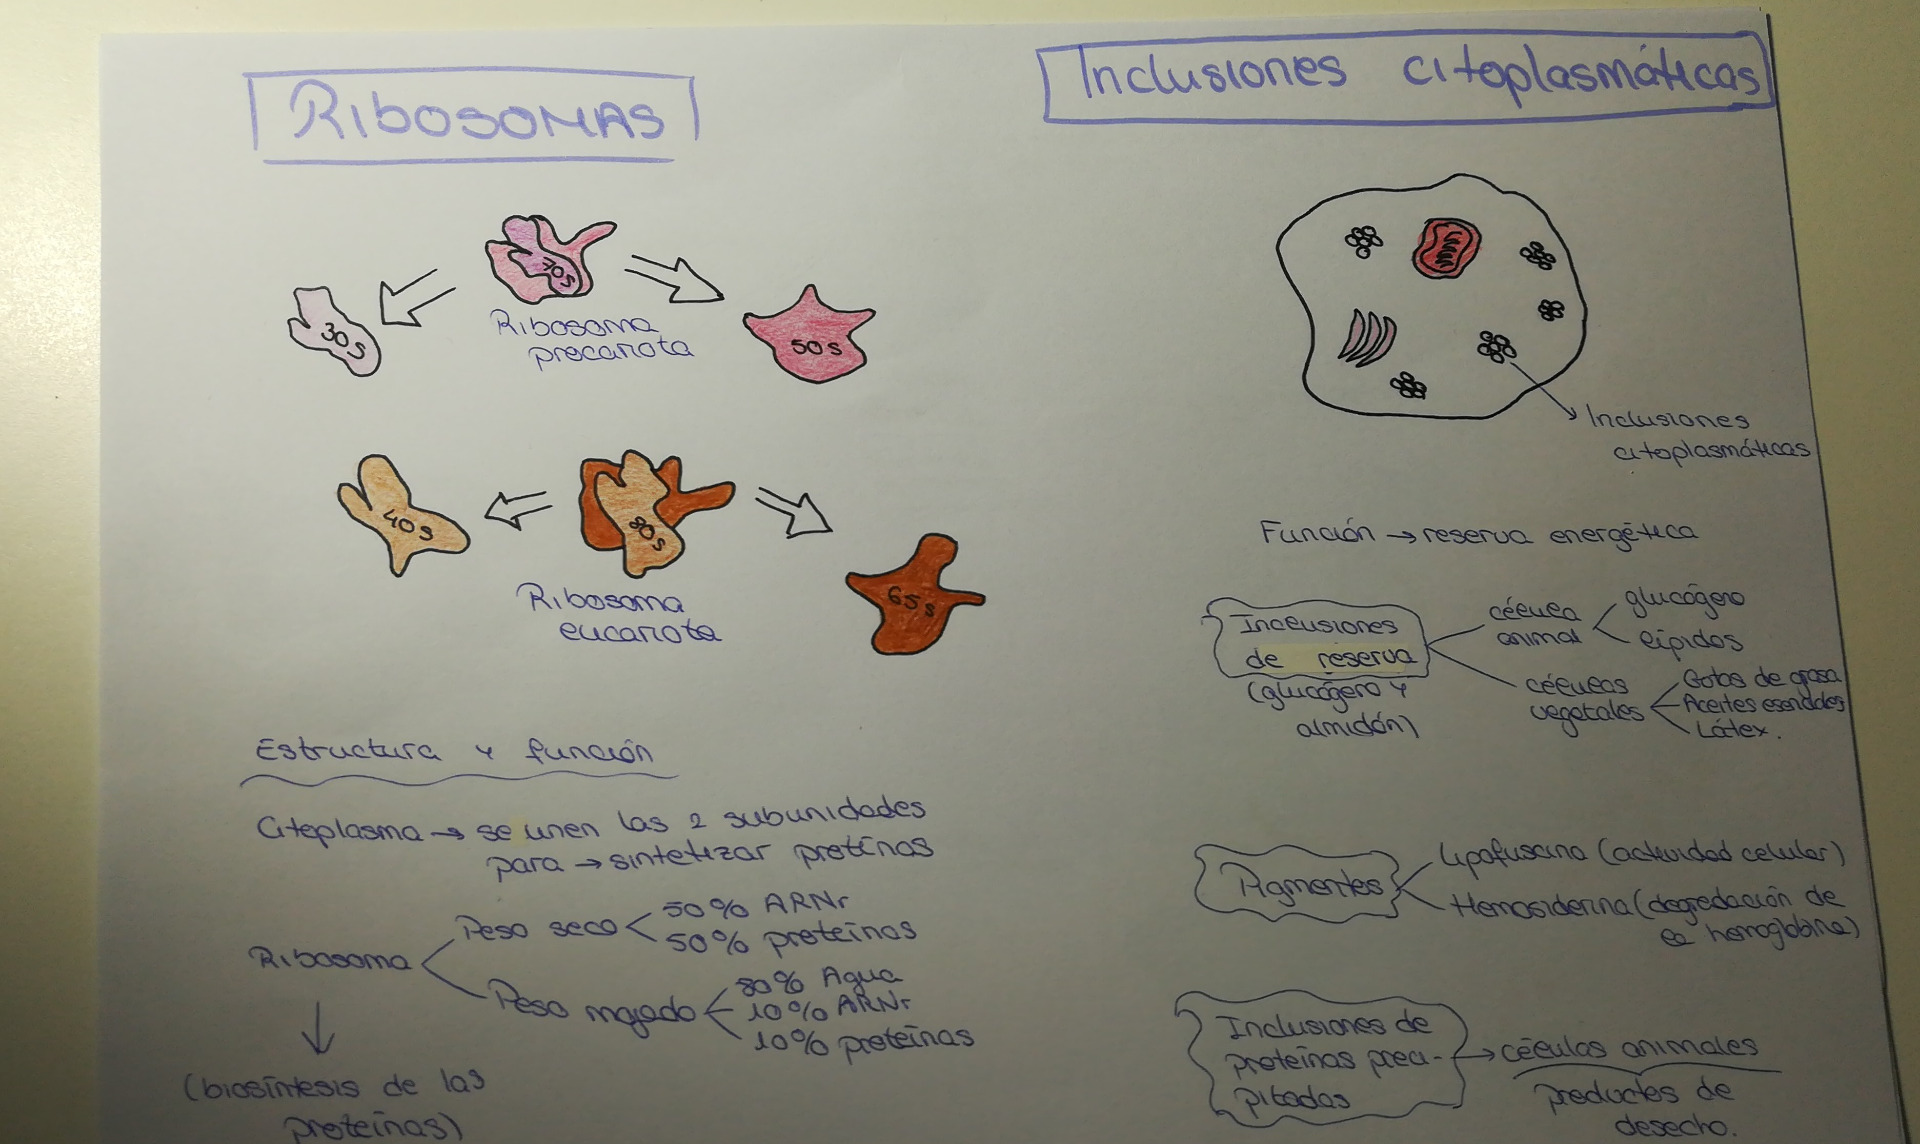 RIBOSOMAS
70s
30s
Ribosoma
procariota
50s
40s
80s
Ribosoma
eucariota
65s
Estructura y función
Citoplasma → se unen las 2 subunidades
para → sintetizar proteínas
Ribosoma
Peso seco
50% ARNr
50% proteínas
Peso mojado
80% Agua
10% ARNr
10% proteínas
(biosíntesis de las
proteínas)
Inclusiones citoplasmáticas
Inclusiones
citoplasmáticas
Función → reserva energética
Inclusiones
de reserva
(glucógeno y
almidón)
célula
animal
glucógeno
lípidos
células
vegetales
Gotas de grasa
Aceites esenciales
Látex.
Pigmentos
Lipofuscina (actividad celular)
Hemosiderina (degradación de
la hemoglobina)
Inclusiones de
proteínas preci-
pitadas
→ células animales
productos de
desecho.